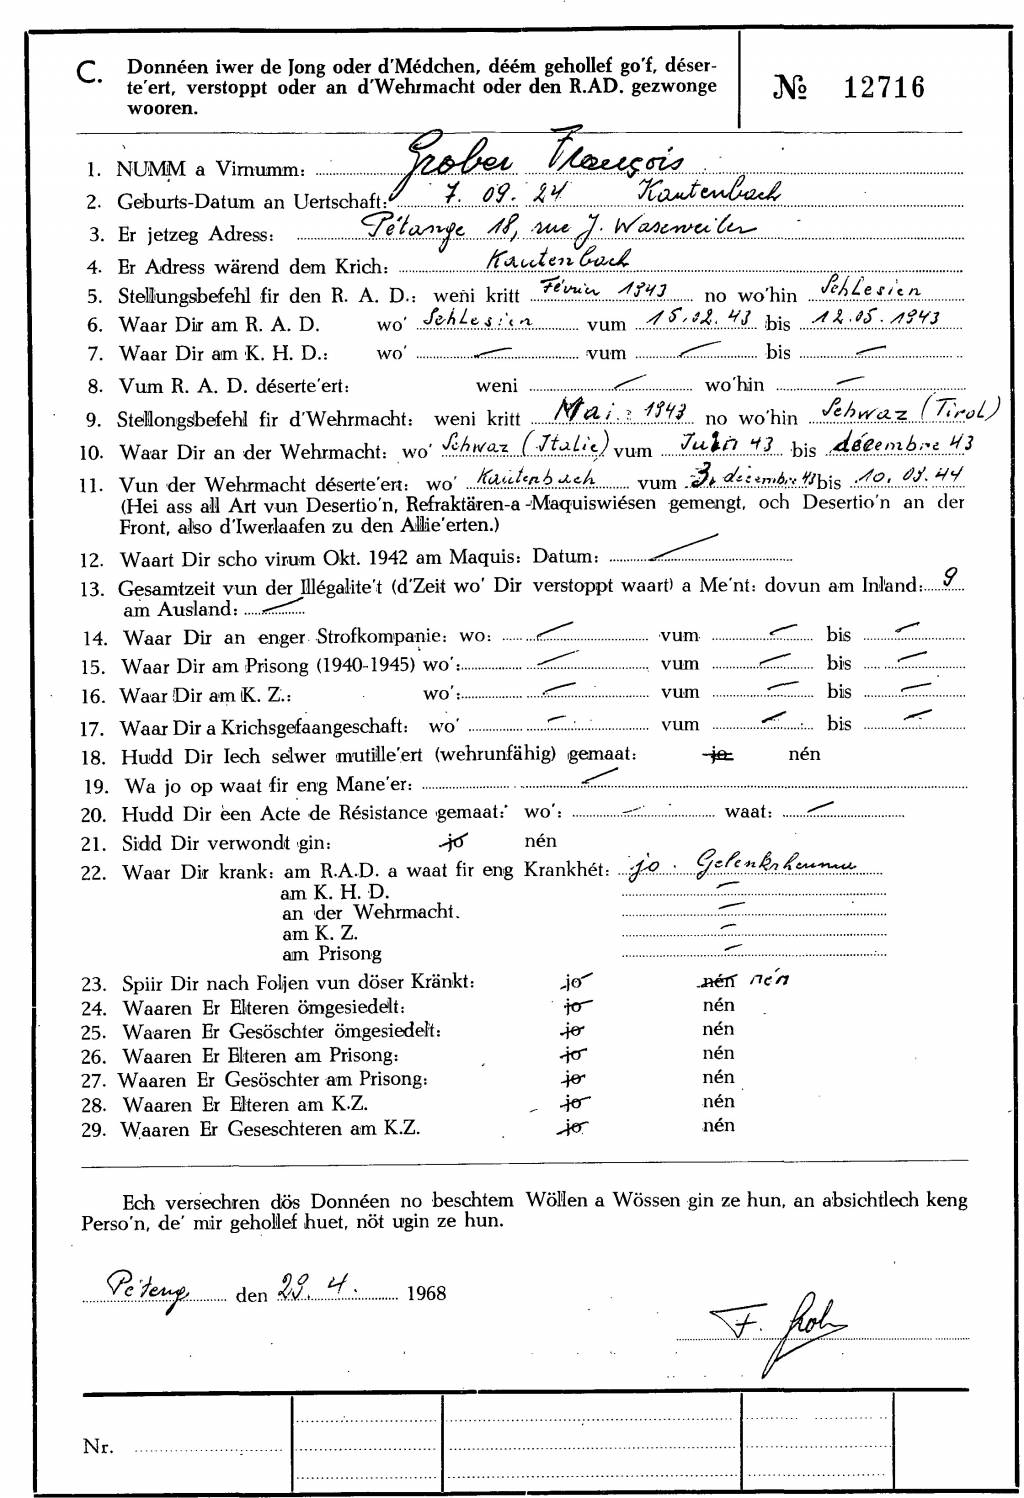 C. Donnéen iwer de Jong oder d'Médchen, déém gehollef go'f, déser-
te'ert, verstoppt oder an d'Wehrmacht oder den R.AD. gezwonge
wooren.
№ 12716
1. NUMM a Virnumm: Grober François
2. Geburts-Datum an Uertschaft: 7. 09. 24 Kautenbach
3. Er jetzeg Adress: Pétange 18, rue J. Waseweiler
4. Er Adress wärend dem Krich: Kautenbach
5. Stellungsbefehl fir den R. A. D.: weni kritt Février 1943 no wo'hin Schlesien
6. Waar Dir am R. A. D. wo' Schlesien vum 15.02.43 bis 12.05.1943
7. Waar Dir am K. H. D.: wo' — vum — bis —
8. Vum R. A. D. déserte'ert: weni — wo'hin —
9. Stellongsbefehl fir d'Wehrmacht: weni kritt Mai 1943 no wo'hin Schwaz (Tirol)
10. Waar Dir an der Wehrmacht: wo' Schwaz (Italie) vum Juin 43 bis décembre 43
11. Vun der Wehrmacht déserte'ert: wo' Kautenbach vum 3. décembre 43 bis 10. 09. 44
(Hei ass all Art vun Desertio'n, Refraktären-a-Maquiswiésen gemengt, och Desertio'n an der
Front, also d'Iwerlaafen zu den Allie'erten.)
12. Waart Dir scho virum Okt. 1942 am Maquis: Datum: —
13. Gesamtzeit vun der Illégalite't (d'Zeit wo' Dir verstoppt waart) a Me'nt: dovun am Inland: 9
am Ausland: —
14. Waar Dir an enger Strofkompanie: wo: — vum — bis —
15. Waar Dir am Prisong (1940-1945) wo': — vum — bis —
16. Waar Dir am K. Z.: wo': — vum — bis —
17. Waar Dir a Krichsgefaangeschaft: wo' — vum — bis —
18. Hudd Dir Iech selwer mutille'ert (wehrunfähig) gemaat: jo nén
19. Wa jo op waat fir eng Mane'er: —
20. Hudd Dir een Acte de Résistance gemaat: wo': — waat: —
21. Sidd Dir verwondt gin: jo nén
22. Waar Dir krank: am R.A.D. a waat fir eng Krankhét: jo. Gelenkrheuma
am K. H. D. —
an der Wehrmacht. —
am K. Z. —
am Prisong —
23. Spiir Dir nach Foljen vun döser Kränkt: jo nén nén
24. Waaren Er Elteren ömgesiedelt: jo nén
25. Waaren Er Gesöschter ömgesiedelt: jo nén
26. Waaren Er Elteren am Prisong: jo nén
27. Waaren Er Gesöschter am Prisong: jo nén
28. Waaren Er Elteren am K.Z. jo nén
29. Waaren Er Geseschteren am K.Z. jo nén
Ech versechren dös Donnéen no beschtem Wöllen a Wössen gin ze hun, an absichtlech keng
Perso'n, de' mir gehollef huet, nöt ugin ze hun.
Péteng den 29. 4. 1968
F. Grober
Nr.